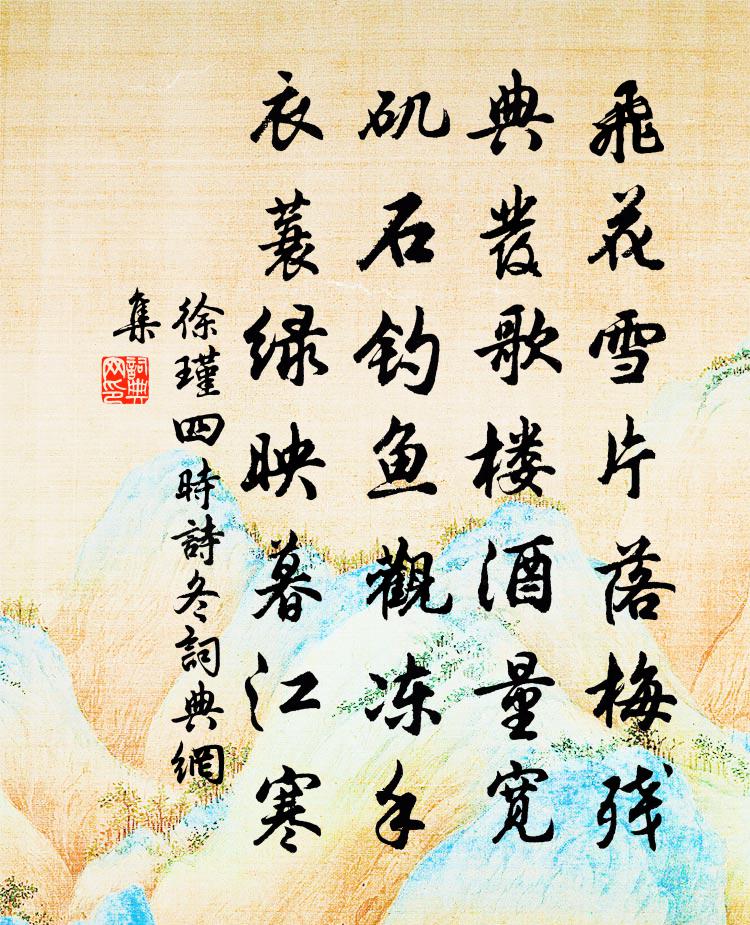 飛花雪片落梅残
典發歌楼酒量寛
矶石钓鱼觀冻手
衣蓑绿映暮江寒
徐瑾四時詩冬詞典網
集
詞典
网印